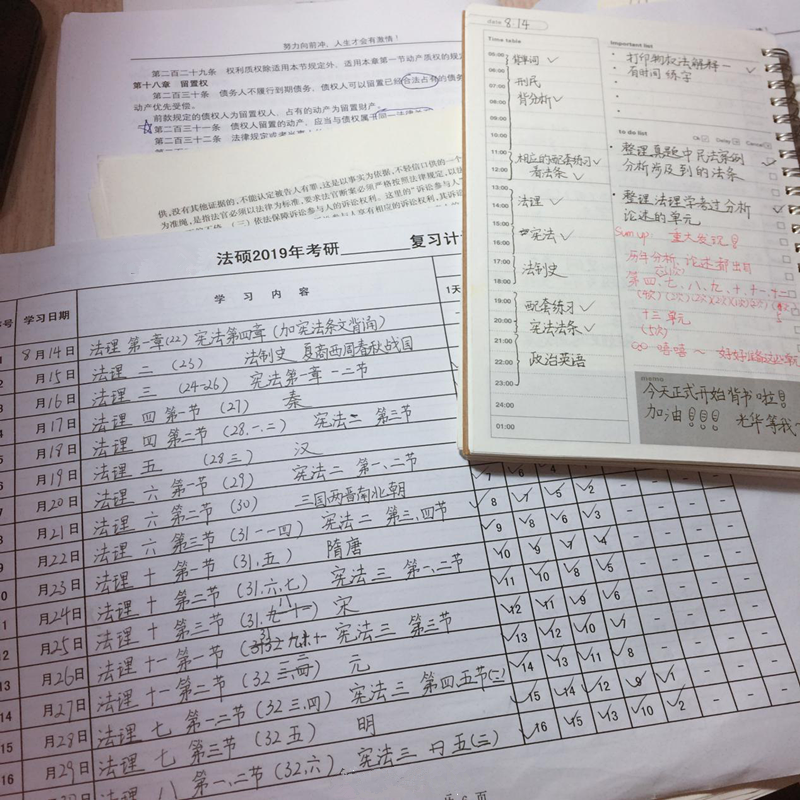 努力向前冲，人生才会有激情！
第二百二十九条 权利质权除适用本节规定外，适用本章第一节动产质权的规定
第十八章 留置权
第二百三十条 债务人不履行到期债务，债权人可以留置已经合法占有的债务
动产优先受偿。
前款规定的债权人为留置权人，占有的动产为留置财产。
第二百三十一条 债权人留置的动产，应当与债权属于同一法律
第二百三十二条 法律规定或者
供，没有其他证据的，不能认定被告人有罪，这是以事实为依据，不轻信口供的一个
为准绳，是指官必须以法律为标准，要求法官断案必须严格按照法律规定，以法
（三）依法保障诉讼参与人的诉讼权利。这里的“诉讼参与人
参与人享有相应的诉讼权利，其诉讼
法硕2019年考研 复习计
学习日期 学 习 内 容 1天
8月14日 法理 第一章(22) 宪法第四章（加宪法条文背诵）
月15日 法理 二 (23) 法制史 夏商西周春秋战国
月16日 法理 三 (24-26) 宪法第一章 一二节
月17日 法理 四 第一节 (27) 秦
月18日 法理 四 第二节 (28.一.二) 宪法二 第三节
月19日 法理 五 (28三) 汉
月20日 法理 六 第一节 (29) 宪法二 第一、二节
月21日 法理 六 第二节 (30) 三国两晋南北朝
月22日 法理 六 第三节 (31一一四) 宪法二 第三、四节
月23日 法理 十 第一节 (31.五) 隋唐
月24日 法理 十 第二节 (31.六.七) 宪法三 第一、二节
月25日 法理 十 第三节 宋
月26日 法理 十一 第一节 宪法三 第三节
月27日 法理 十一 第二节 元
月28日 法理 七 第一、二节 (32 三,四) 宪法三 第四、五节(二)
月29日 法理 七 第三节 (32 五) 明
法理 八 第一、二节 (32.六) 宪法三
7 6
8 6 5 2
9 8 6 3
10 9 7 4
11 10 8 5
12 11 9 6
13 12 10 7
14 13 11 8
15 14 12 9 1
16 15 13 10 2
date 8.14
Time table
05:00
06:00 背单词
07:00 刑民
08:00 背分析
09:00
10:00
11:00 相应的配套练习
12:00 看法条
13:00
14:00 法理
15:00
16:00 宪法
17:00
18:00 法制史
19:00
20:00 配套练习
21:00 宪法法条
22:00 政治英语
23:00
24:00
01:00
Important list
打印物权法解释一
有时间 练字
to do list
Ok Delay Cancel
整理真题中民法案例
分析涉及到的法条
整理法理学考过分析
论述的单元
Sum up: 重大发现!!
历年分析、论述都出自
第四、七、八、九、十、十一、十二
十三单元
(5次)
嘻嘻～ 好好准备这些单元
memo
今天正式开始背书啦!!
加油!!! 光华等我～